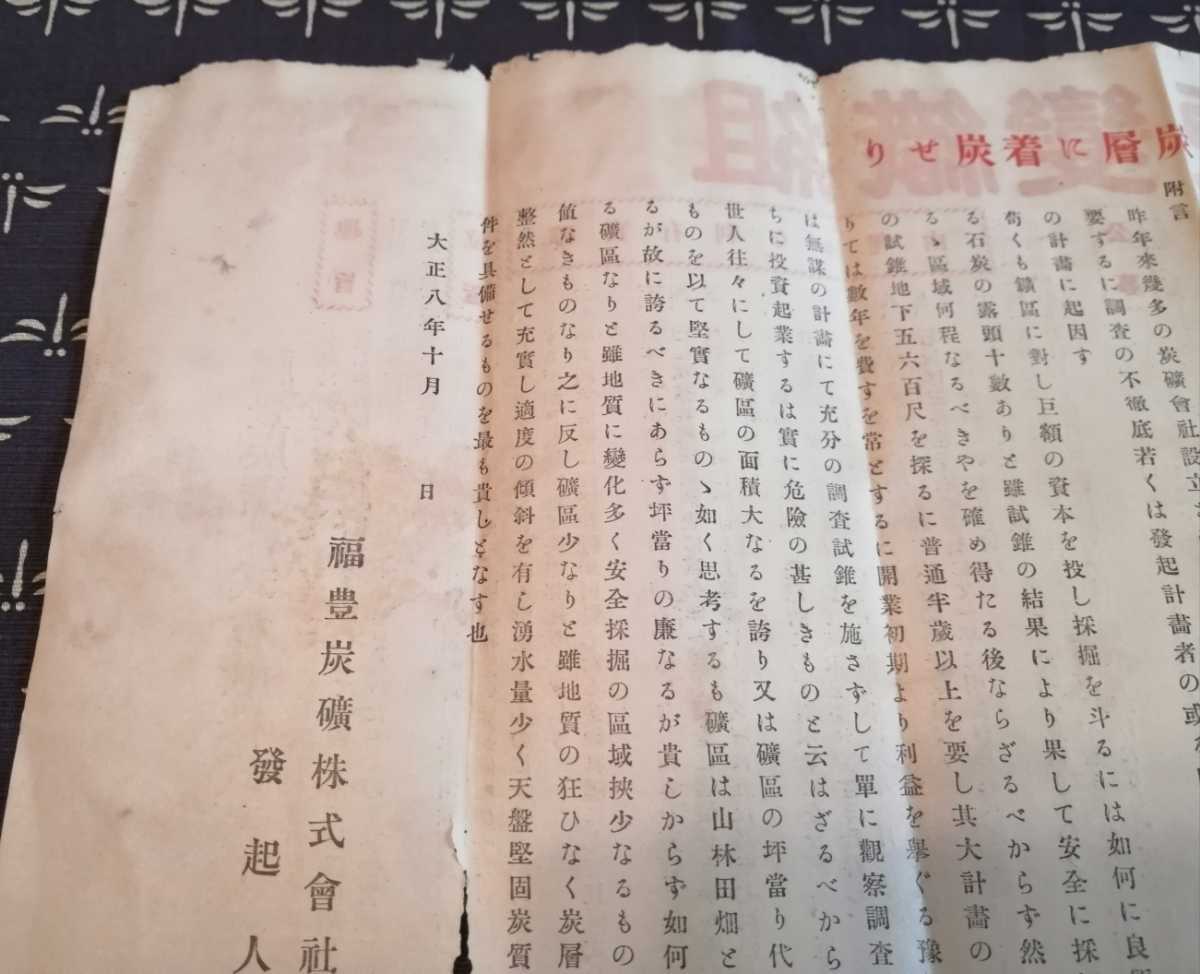 炭層に着炭せり
附言
昨年來幾多の炭礦會社設立
要するに調査の不徹底若くは發起計畫者の或
の計畫に起因す
苟くも鑛區に對し巨額の資本を投し採掘を斗るには如何に良
る石炭の露頭十數ありと雖試錐の結果により果して安全に採
るゝ區域何程なるべきやを確め得たる後ならざるべからず然
の試錐地下五六百尺を探るに普通半歳以上を要し其大計畫の
りては數年を費すを常とするに開業初期より利益を擧ぐる豫
は無謀の計畫にて充分の調査試錐を施さずして單に觀察調査
ちに投資起業するは實に危險の甚しきものと云はざるべから
世人往々にして礦區の面積大なるを誇り又は礦區の坪當り代
ものを以て堅實なるものゝ如く思考するも礦區は山林田畑と
るが故に誇るべきにあらず坪當りの廉なるが貴しからず如何
る礦區なりと雖地質に變化多く安全採掘の區域挾少なるもの
値なきものなり之に反し礦區少なりと雖地質の狂ひなく炭層
整然として充實し適度の傾斜を有し湧水量少く天盤堅固炭質
件を具備せるものを最も貴しとなす也
大正八年十月　　日
福豊炭礦株式會社
發起人